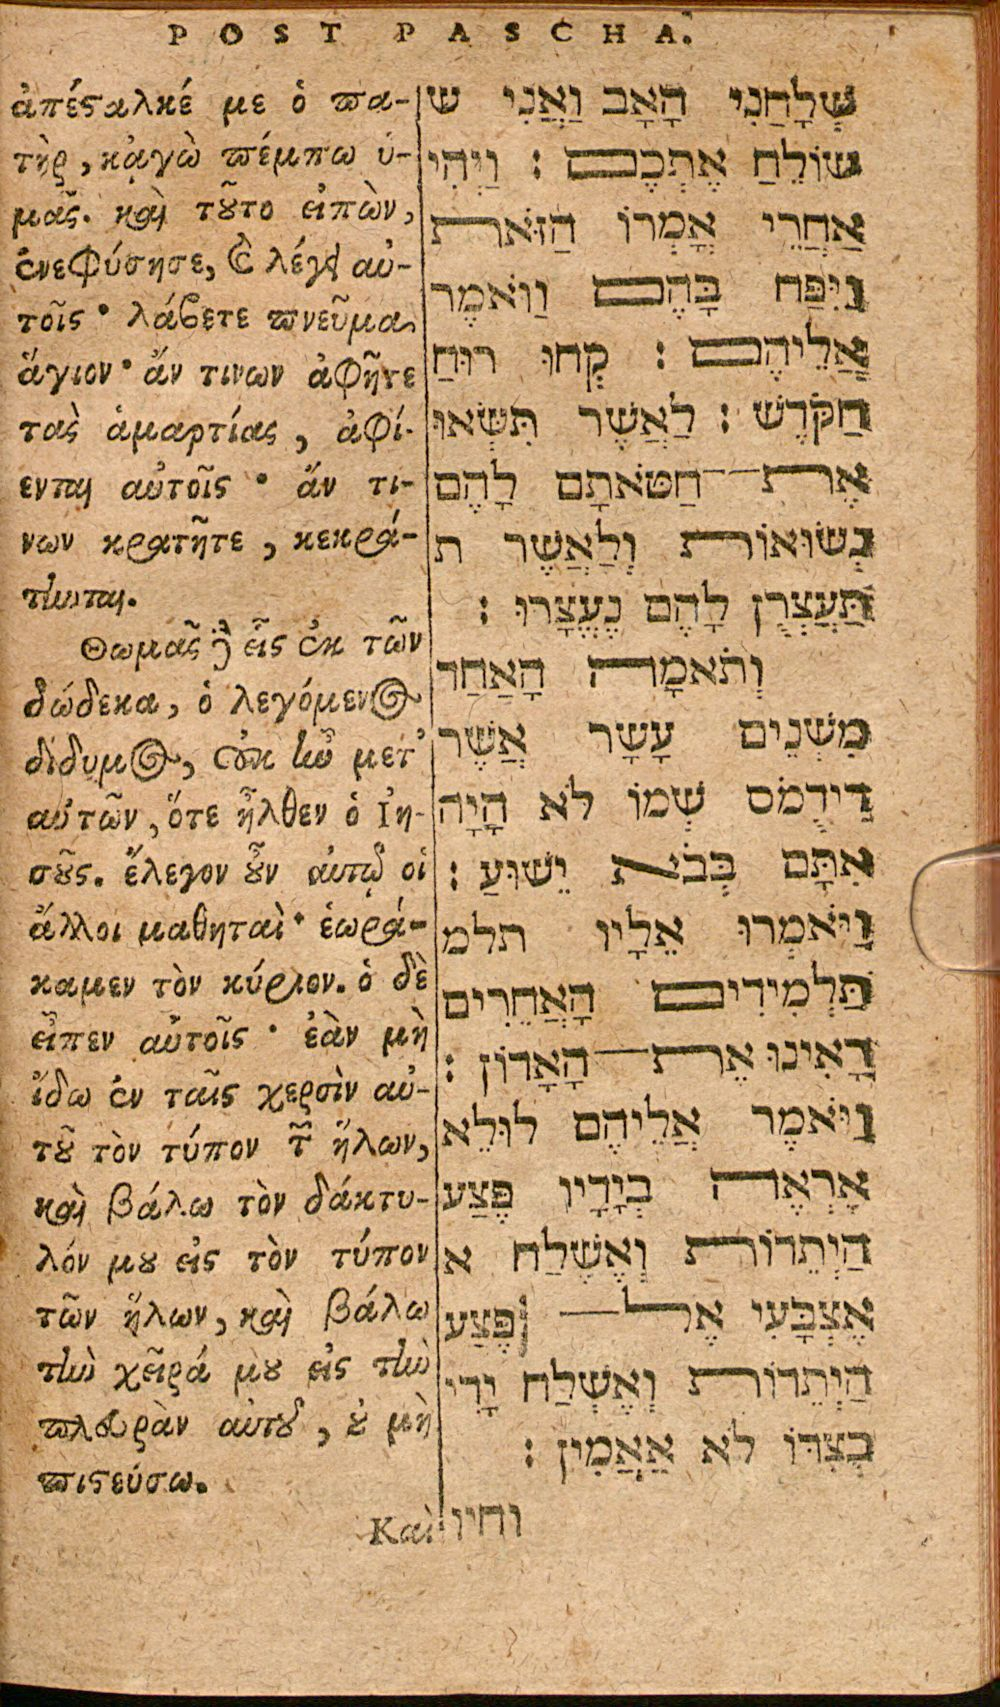 POST PASCHA.
ἀπέσταλκέ με ὁ πα-
τὴρ, κᾀγὼ πέμπω ὑ-
μᾶς. καὶ τοῦτο εἰπὼν,
ἐνεφύσησε, καὶ λέγει αὐ-
τοῖς· λάβετε πνεῦμα
ἅγιον· ἄν τινων ἀφῆτε
τὰς ἁμαρτίας, ἀφί-
ενται αὐτοῖς· ἄν τι-
νων κρατῆτε, κεκρά-
τηνται.
Θωμᾶς δὲ εἷς ἐκ τῶν
δώδεκα, ὁ λεγόμενος
δίδυμος, οὐκ ἦν μετ᾽
αὐτῶν, ὅτε ἦλθεν ὁ Ἰη-
σοῦς. ἔλεγον οὖν αὐτῷ οἱ
ἄλλοι μαθηταὶ· ἑωρά-
καμεν τὸν κύριον. ὁ δὲ
εἶπεν αὐτοῖς· ἐὰν μὴ
ἴδω ἐν ταῖς χερσὶν αὐ-
τοῦ τὸν τύπον τῶν ἥλων,
καὶ βάλω τὸν δάκτυ-
λόν μου εἰς τὸν τύπον
τῶν ἥλων, καὶ βάλω
τὴν χεῖρά μου εἰς τὴν
πλευρὰν αὐτοῦ, οὐ μὴ
πιστεύσω.
Καὶ
שְׁלָחַנִי הָאָב וַאֲנִי ש
שׁוֹלֵחַ אֶתְכֶם : וַיְהִי
אַחֲרֵי אָמְרוֹ הַזּאֹת
וַיִּפַּח בָּהֶם וַיּאֹמֶר
אֲלֵיהֶם : קְחוּ רוּחַ
הַקֹּדֶשׁ : לַאֲשֶׁר תִּשְּׂאוּ
אֶת־חַטּאֹתָם לָהֶם
נְשׂוּאוֹת וְלַאֲשֶׁר ת
תַּעֲצְרֻן לָהֶם נֶעֱצָרוּ :
וְתאֹמָה הָאַחַד
מִשְּׁנֵים עָשָׂר אֲשֶׁר
דִּידֻמֹס שְׁמוֹ לֹא הָיָה
אִתָּם בְּבֹאת יֵשׁוּעַ :
וַיּאֹמְרוּ אֵלָיו תלמ
תַּלְמִידִים הָאֲחֵרִים
רָאִינוּ אֶת־הָאָדוֹן :
וַיּאֹמֶר אֲלֵיהֶם לוּלֵא
אֶרְאֶה בְיָדָיו פֶּצַע
הַיְתֵדוֹת וְאֶשְׁלַח א
אֶצְבָּעִי אֶל־פֶּצַע
הַיְתֵדוֹת וְאֶשְׁלַח יָדִי
בְּצִדּוֹ לֹא אַאֲמִין :
והיו